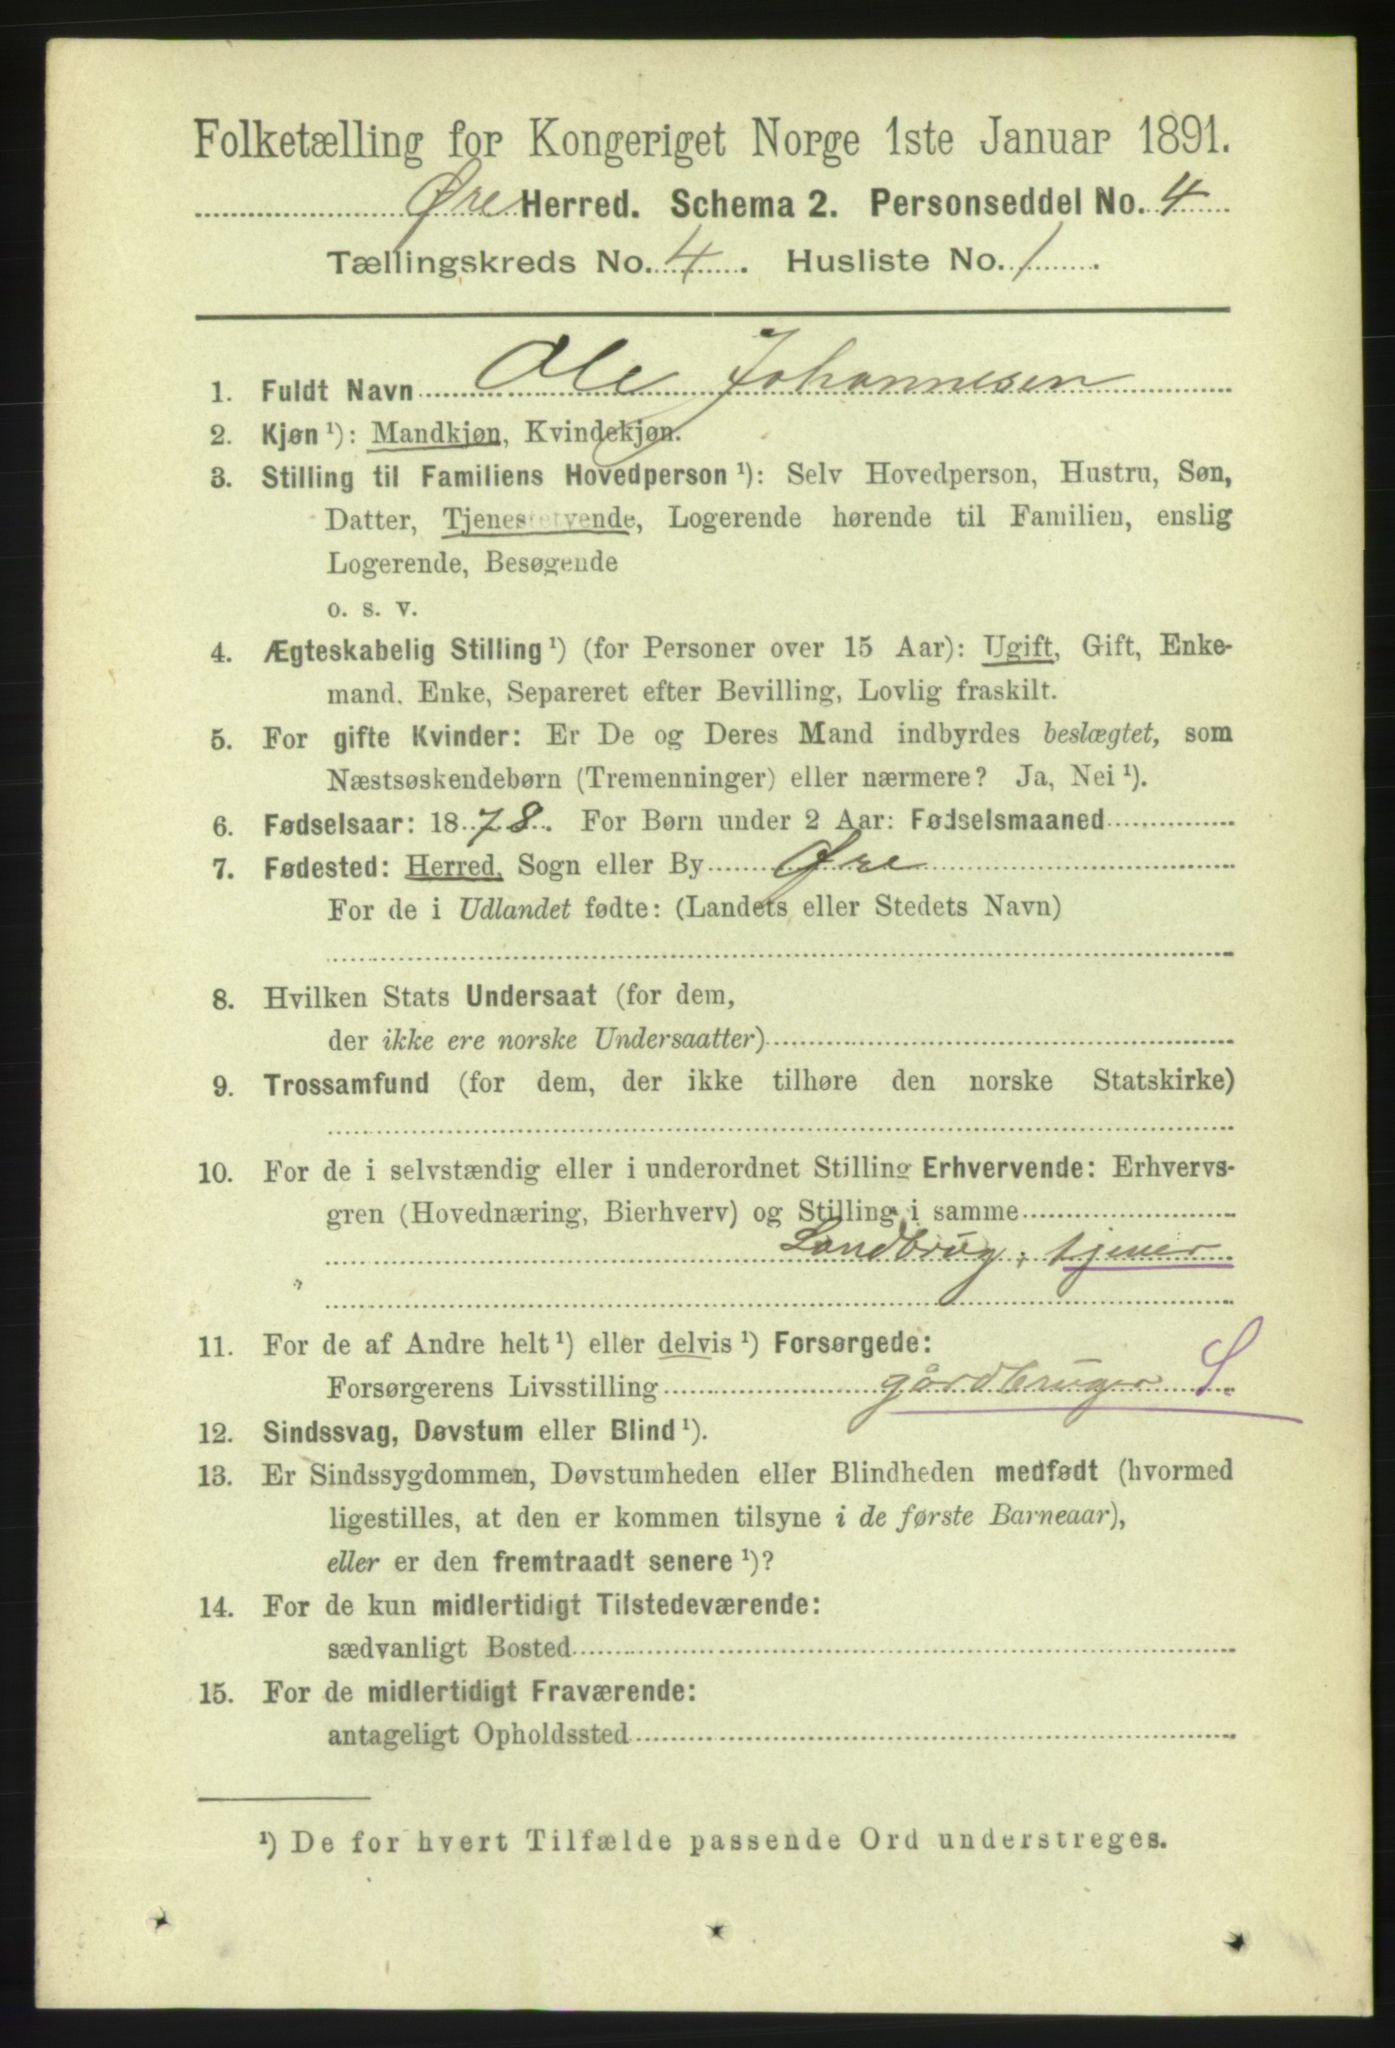 Folketælling for Kongeriget Norge 1ste Januar 1891.
Øre Herred. Schema 2. Personseddel No. 4
Tællingskreds No. 4. Husliste No. 1.
1. Fuldt Navn Ole Johannesen
2. Kjøn ¹): Mandkjøn, Kvindekjøn.
3. Stilling til Familiens Hovedperson ¹): Selv Hovedperson, Hustru, Søn,
Datter, Tjenestetyende, Logerende hørende til Familien, enslig
Logerende, Besøgende
o. s. v.
4. Ægteskabelig Stilling ¹) (for Personer over 15 Aar): Ugift, Gift, Enke-
mand, Enke, Separeret efter Bevilling, Lovlig fraskilt.
5. For gifte Kvinder: Er De og Deres Mand indbyrdes beslægtet, som
Næstsøskendebørn (Tremenninger) eller nærmere? Ja, Nei ¹).
6. Fødselsaar: 1878. For Børn under 2 Aar: Fødselsmaaned
7. Fødested: Herred, Sogn eller By Øre
For de i Udlandet fødte: (Landets eller Stedets Navn)
8. Hvilken Stats Undersaat (for dem,
der ikke ere norske Undersaatter)
9. Trossamfund (for dem, der ikke tilhøre den norske Statskirke)
10. For de i selvstændig eller i underordnet Stilling Erhvervende: Erhvervs-
gren (Hovednæring, Bierhverv) og Stilling i samme
Landbrug, tjener
11. For de af Andre helt ¹) eller delvis ¹) Forsørgede:
Forsørgerens Livsstilling gårdbruger S.
12. Sindssvag, Døvstum eller Blind ¹).
13. Er Sindssygdommen, Døvstumheden eller Blindheden medfødt (hvormed
ligestilles, at den er kommen tilsyne i de første Barneaar),
eller er den fremtraadt senere ¹)?
14. For de kun midlertidigt Tilstedeværende:
sædvanligt Bosted
15. For de midlertidigt Fraværende:
antageligt Opholdssted
¹) De for hvert Tilfælde passende Ord understreges.